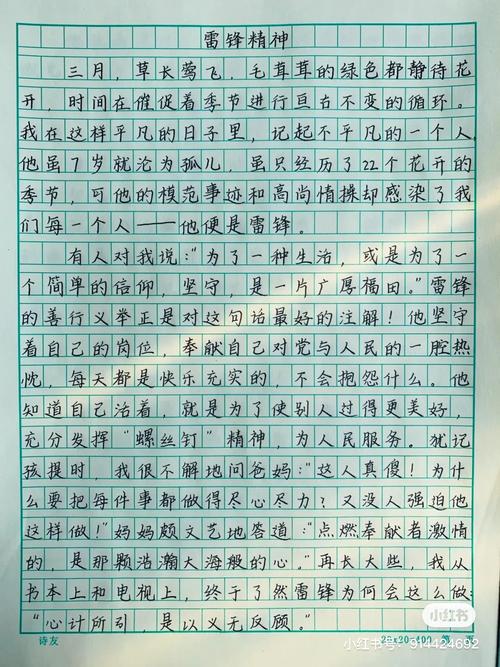 雷锋精神
三月，草长莺飞，毛茸茸的绿色都静待花
开，时间在催促着季节进行亘古不变的循环。
我在这样平凡的日子里，记起不平凡的一个人。
他虽7岁就沦为孤儿，虽只经历了22个花开的
季节，可他的模范事迹和高尚情操却感染了我
们每一个人——他便是雷锋。
有人对我说："为了一种生活，或是为了一
个简单的信仰，坚守，是一片广厚福田。"雷锋
的善行义举正是对这句话最好的注解！他坚守
着自己的岗位，奉献自己对党与人民的一腔热
忱，每天都是快乐充实的，不会抱怨什么。他
知道自己活着，就是为了使别人过得更美好，
充分发挥"螺丝钉"精神，为人民服务。犹记
孩提时，我很不解地问爸妈："这人真傻！为什
么要把每件事都做得尽心尽力？又没人强迫他
这样做！"妈妈颇文艺地答道："点燃奉献者激情
的，是那颗浩瀚大海般的心。"再长大些，我从
书本上和电视上，终于了然雷锋为何会这么做：
"心计所引，是以义无反顾。"
小红书
诗友
20×20=400 第 页
小红书号：914424692